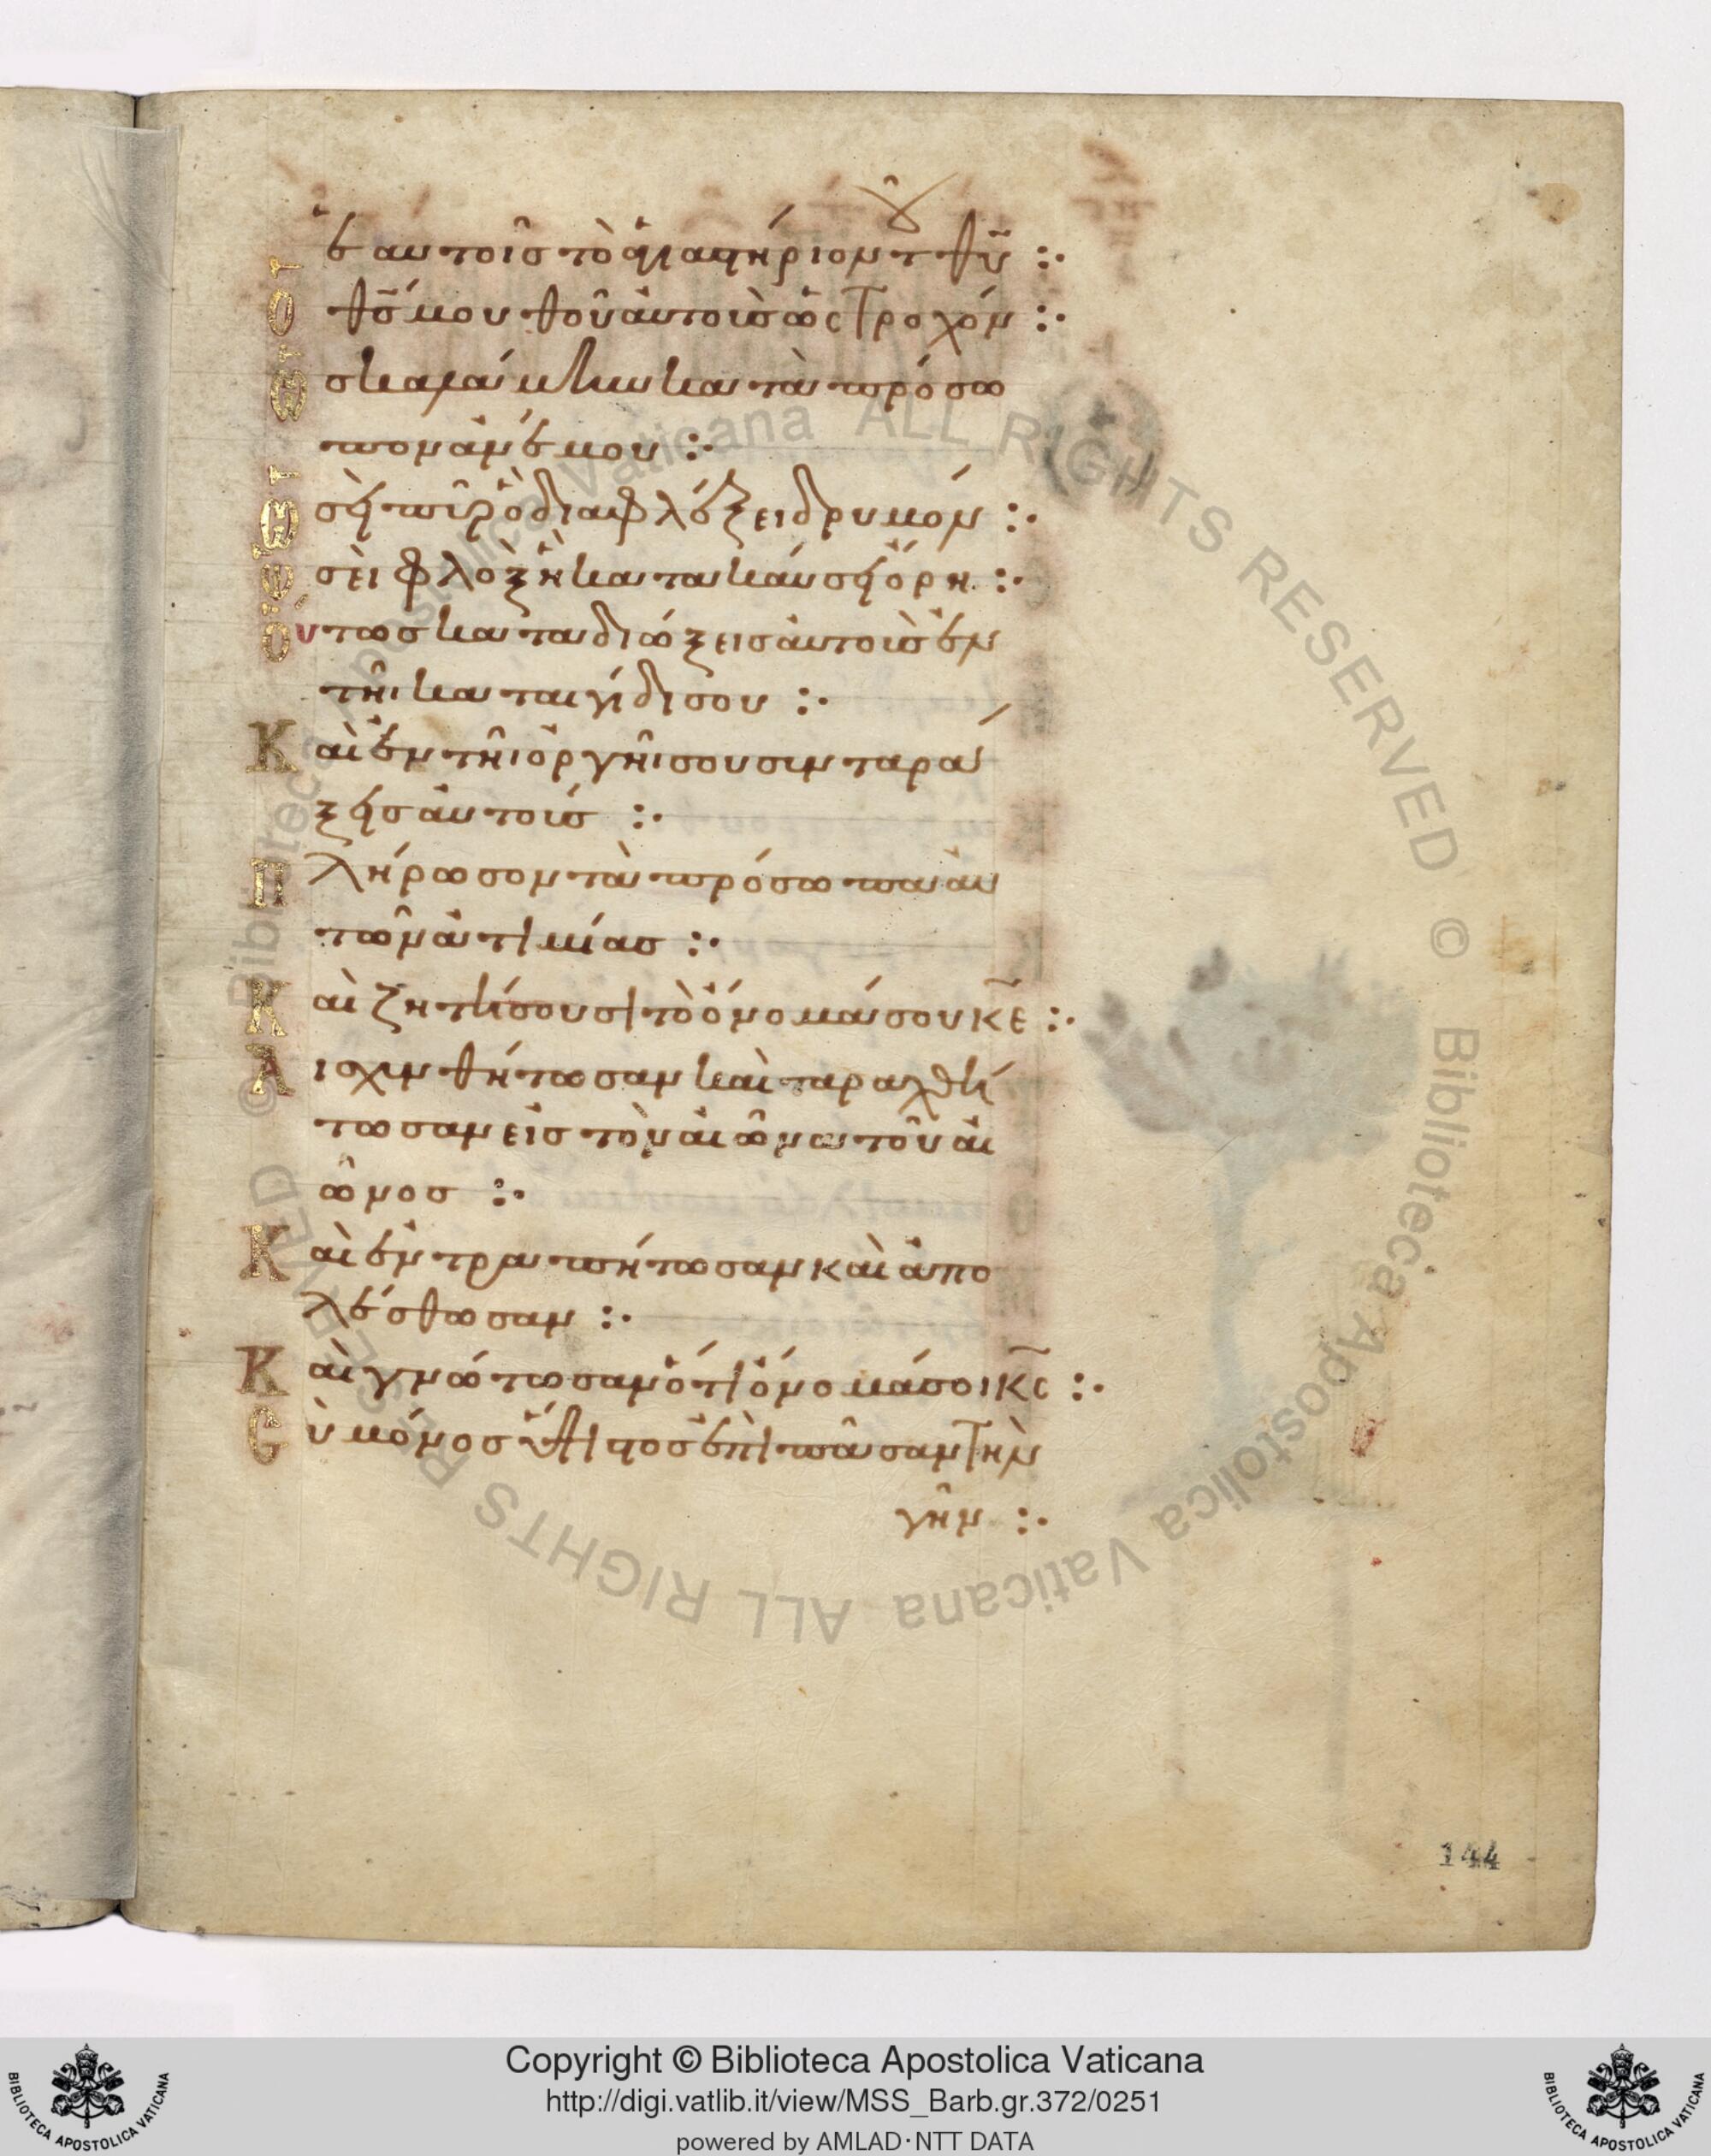 ἑαυτοῖς τὸ ἁγιαστήριον τ θῦ :·
Ὁ θς̄ μου θοῦ αὐτοὺς ὡς τροχόν :·
Ὡς καλάμην κατὰ πρόσω
πον ἀνέμου :·
Ὡσεὶ πῦρ ὃ διαφλέξει δρυμόν :·
Ὡσεὶ φλὸξ ἣ κατακαύσει ὄρη :·
Οὕτως καταδιώξεις αὐτοὺς ἐν
τῆι καταιγίδι σου :·
Καὶ ἐν τῆι ὀργῆι σου συνταρά
ξεις αὐτούς :·
Πλήρωσον τὰ πρόσωπα αὐ
τῶν ἀτιμίας :·
Καὶ ζητήσουσι τὸ ὄνομά σου κ̄ε̄ :·
Αἰσχυνθήτωσαν καὶ ταραχθή
τωσαν εἰς τὸν αἰῶνα τοῦ αἰ
ῶνος :·
Καὶ ἐντραπήτωσαν καὶ ἀπο
λέσθωσαν :·
Καὶ γνώτωσαν ὅτι ὄνομά σοι κ̄ς̄ :·
Σὺ μόνος ὕψιστος ἐπὶ πᾶσαν τὴν
γῆν :·
144
© Biblioteca Apostolica Vaticana ALL RIGHTS RESERVED © Biblioteca Apostolica Vaticana ALL RIGHTS RESERVED
Copyright © Biblioteca Apostolica Vaticana
http://digi.vatlib.it/view/MSS_Barb.gr.372/0251
powered by AMLAD·NTT DATA
BIBLIOTECA APOSTOLICA VATICANA
BIBLIOTECA APOSTOLICA VATICANA